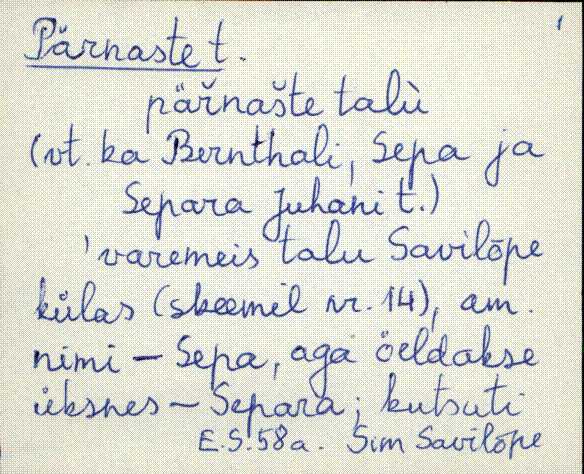 1
Pärnaste t.
päřnašte talù
(vt. ka Bernthali, Sepa ja
Separa Juhani t.)
'varemeis talu Savilõpe
külas (skeemil nr. 14), am.
nimi – Sepa, aga öeldakse
üksnes – Separa; kutsuti
E.S. 58 a. Sim Savilõpe